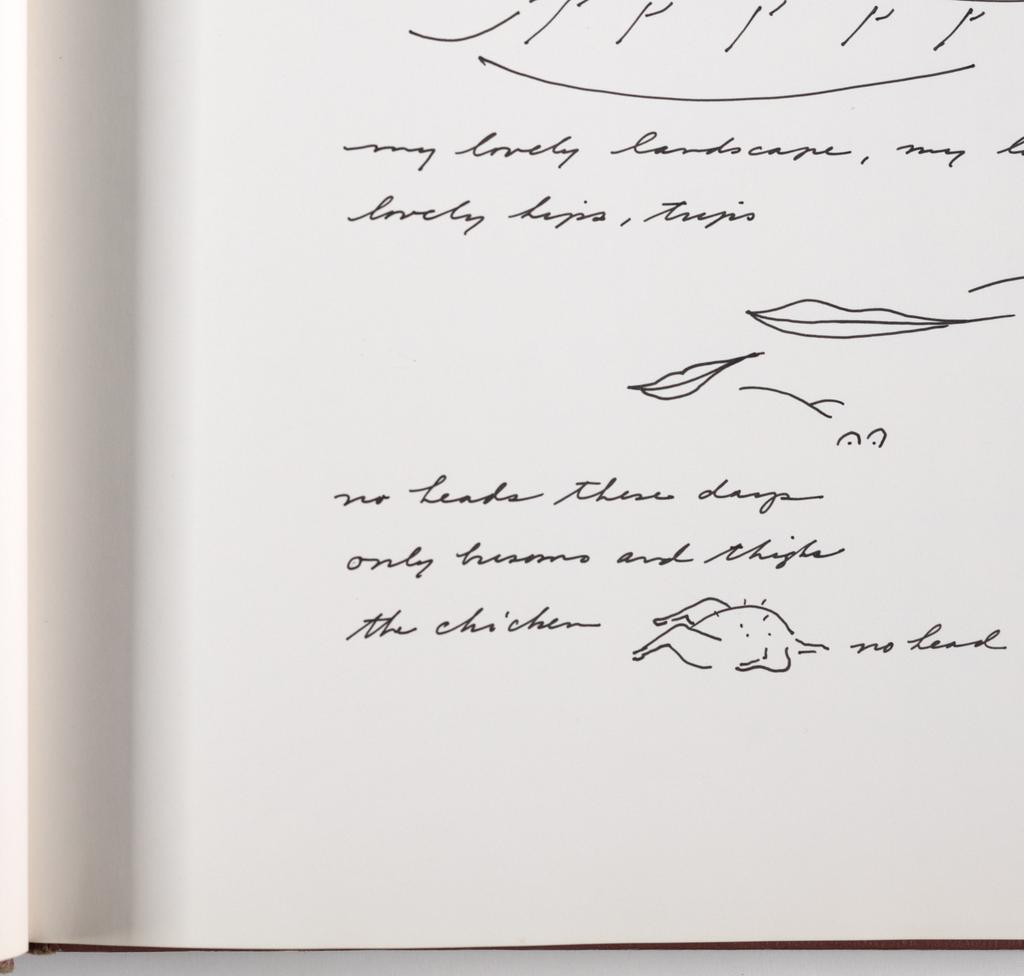 my lovely landscape, my
lovely hips, trips
no heads these days
only bosoms and thighs
the chicken no head